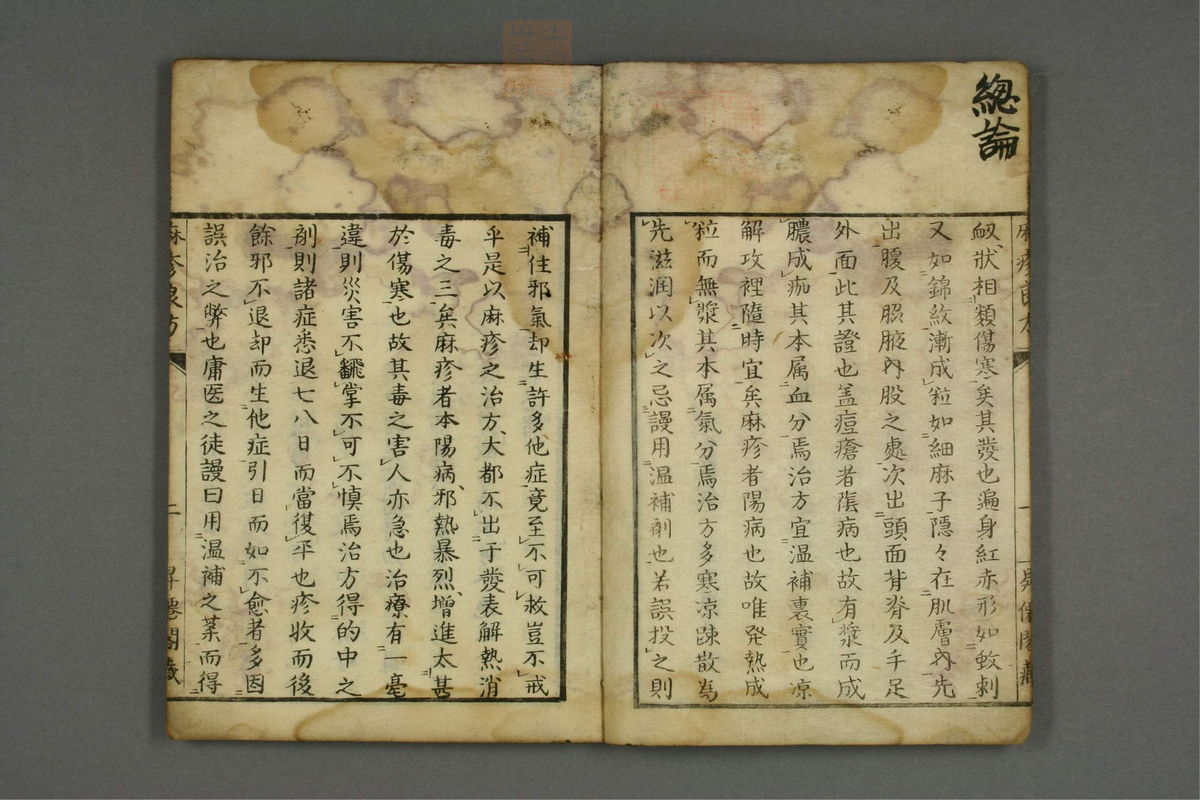 總論
衂、狀相類傷寒矣其發也遍身紅赤形如蚊刺
又如錦紋漸成粒如細麻子隱々在肌膚內先
出腹及脇腋內股之處次出頭面背脊及手足
外面此其證也盖痘瘡者陰病也故有漿而成
膿成痂其本属血分焉治方宜温補裏實也凉
解攻裡隨時宜矣麻疹者陽病也故唯発熱成
粒而無漿其本属氣分焉治方多寒凉踈散爲
先滋潤以次之忌謾用温補劑也若誤投之則
補住邪氣却生許多他症竟至不可救豈不戒
乎是以麻疹之治方、大都不出于發表解熱消
毒之三矣麻疹者本陽病、邪熱暴烈、増進太甚
於傷寒也故其毒之害人亦急也治療有一毫
違則災害不飜掌不可不慎焉治方得的中之
劑則諸症悉退七八日而當復平也疹收而後
餘邪不退却而生他症引日而如不愈者多因
誤治之弊也庸医之徒謾曰用温補之薬而得
麻疹良方
二